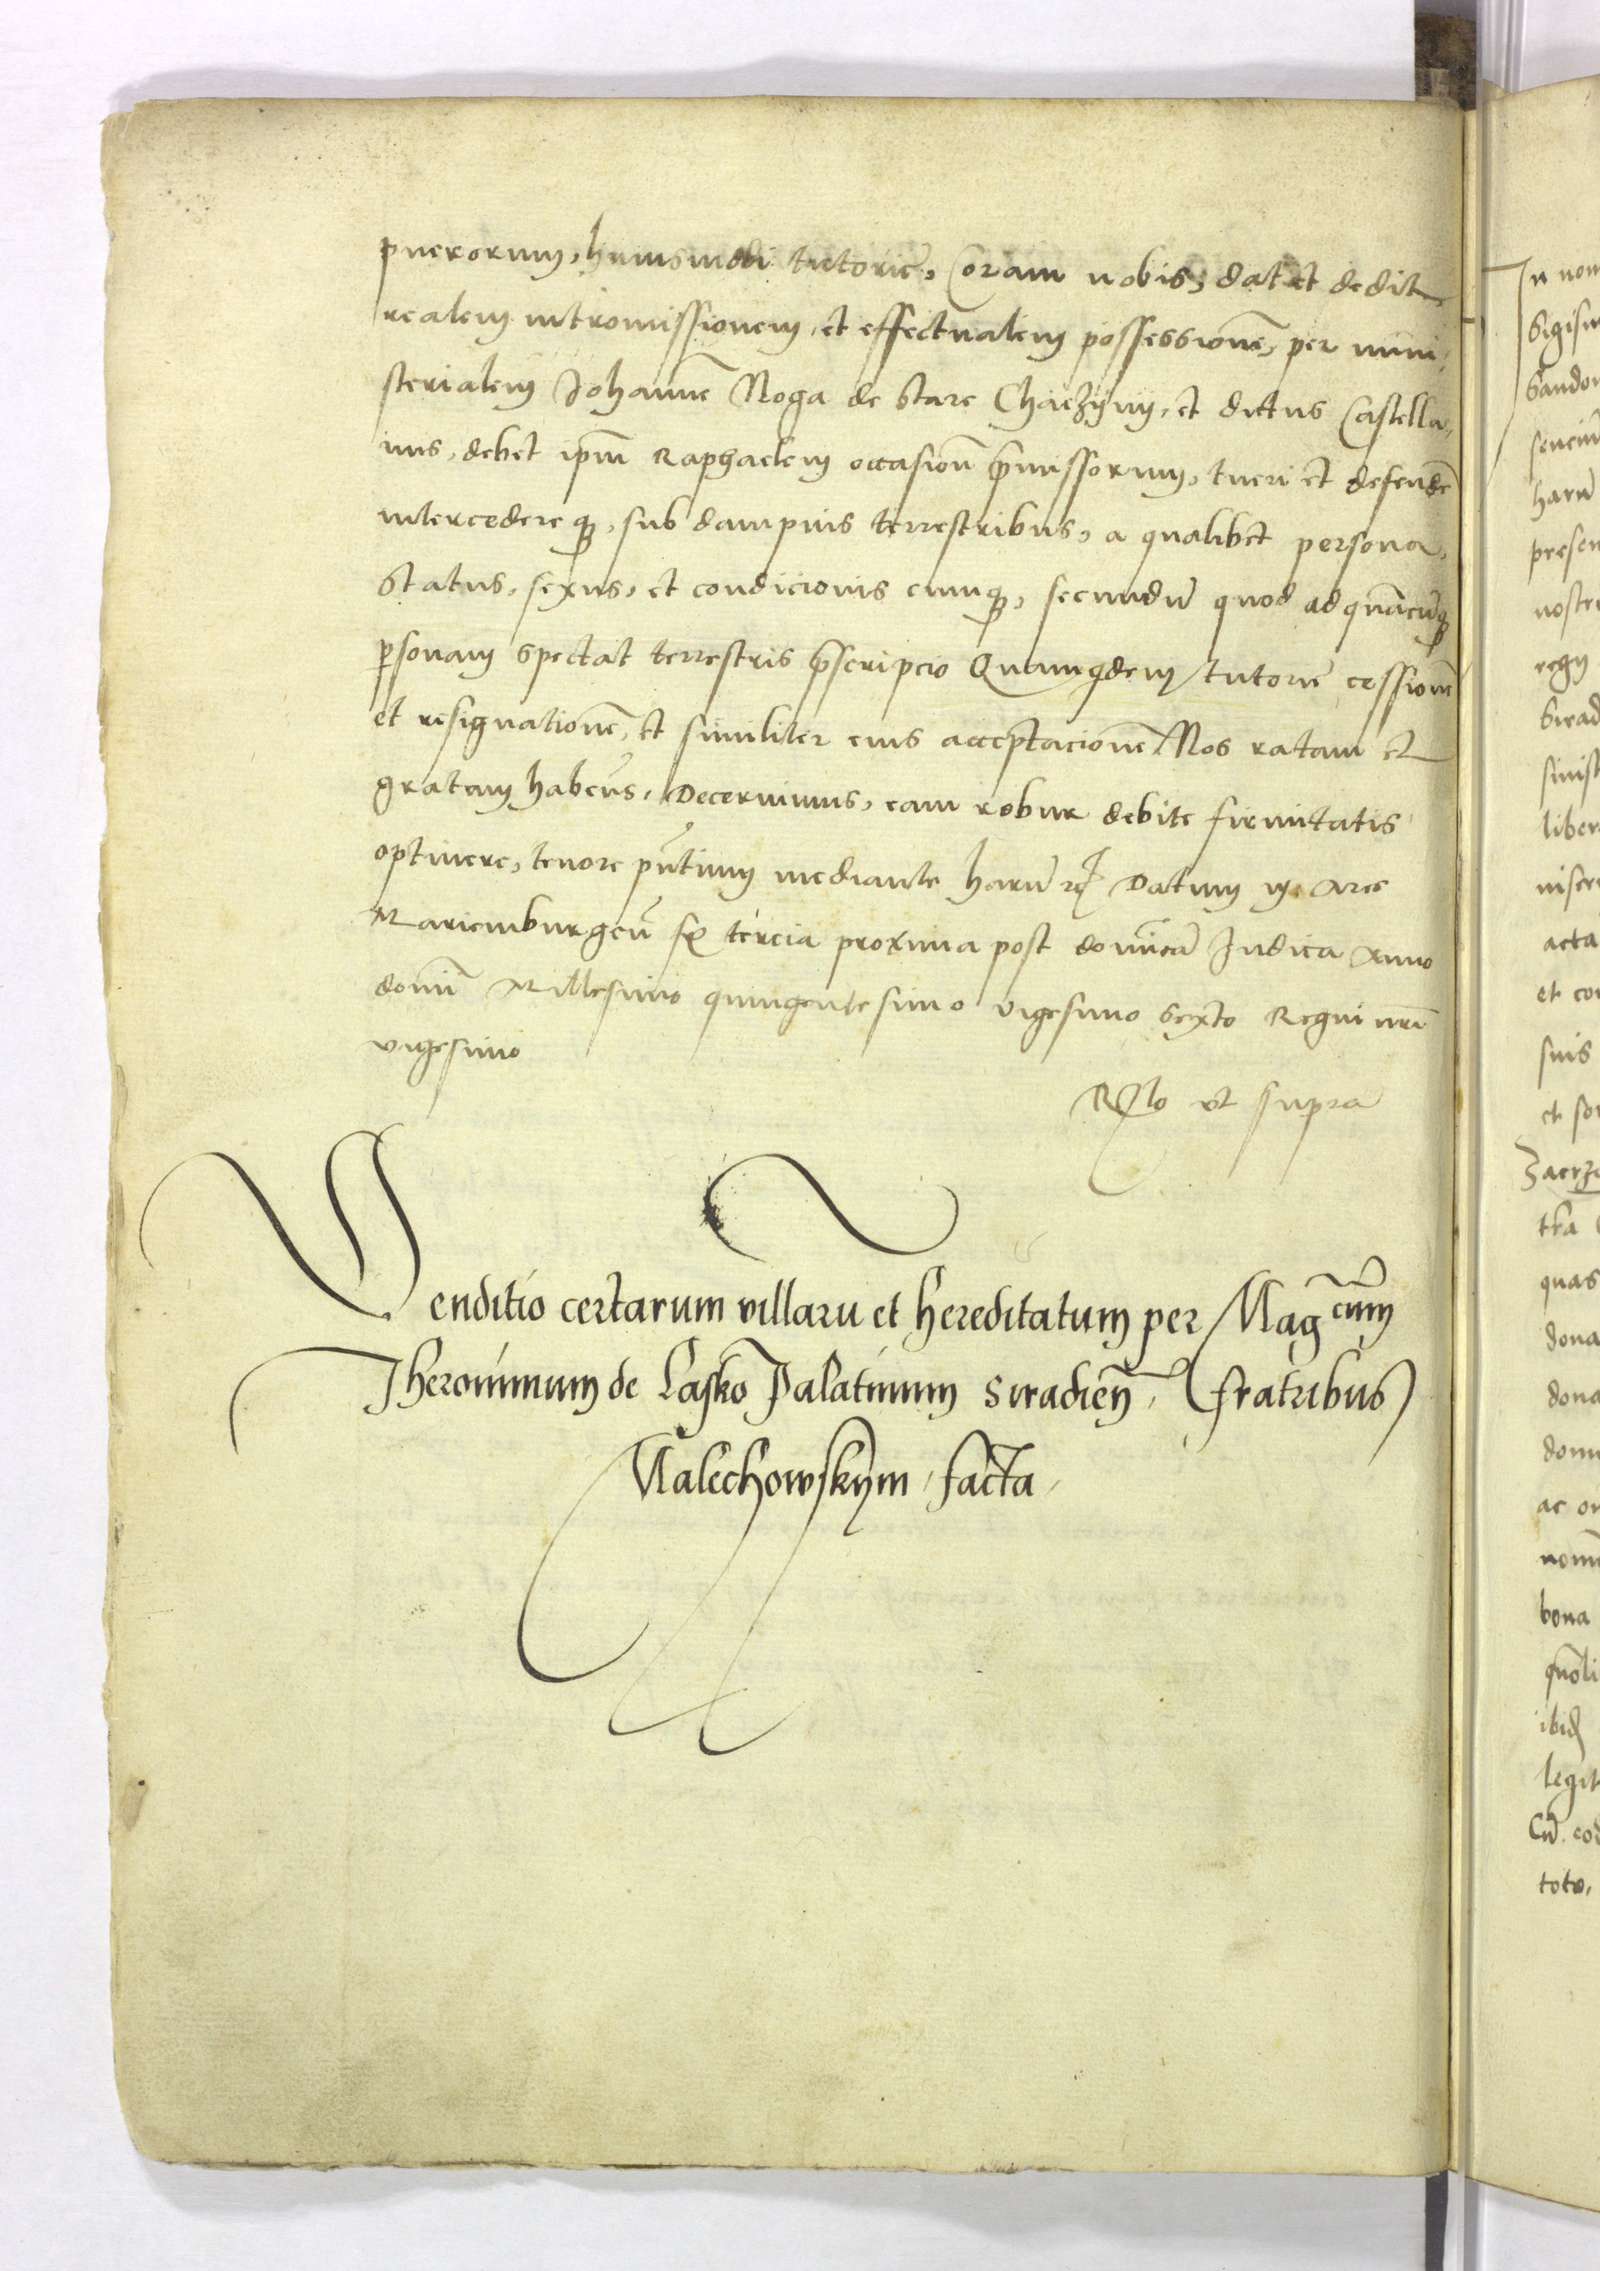 puerorum, huiusmodi tutorie, Coram nobis, dat et dedit
realem intromissionem, et effectualem possessionē, per mini,
sterialem Johannē Noga de Stare Chaczyny, et dictus Castella,
nus, debet ipm̄ Raphaelem occasiōn p̄missorum, tueri et defendē
intercedereqꝫ, sub dampnis terrestribus, a qualibet persona,
status, sexus, et condicionis cuiusqꝫ, secundū quod ad quācūqꝫ
ꝑsonam spectat terrestris p̄scripcio Quamqdem tutorie cessionē
et resignationē, et similiter eius acceptacionē Nos ratam et
gratam habeūs, Decernimus, eam robur debite firmitatis
optinere, tenore pn̄tium mediante harū rē Datum in Arce
Mariemburgeñ fe tercia proxima post domīcā Judica Anno
domī Millesimo quingentesimo vigesimo sexto Regni nr̄i
vigesimo
Rlo vt supra
Venditio certarum villaru et hereditatum per Mag cum̄
Jheronimum de Lasko Palatinum Siradieñ, fratribus
Nalechowskym, facta,
In nom
Sigism
Sando
harū
presen
nostri
regn
Sirad
sinist
liber
acta
et con
suis
Zaerz
tka
quas
dona
dona
ac om
nomi
bona
quoli
ibid
legit
Cū eod
toto,